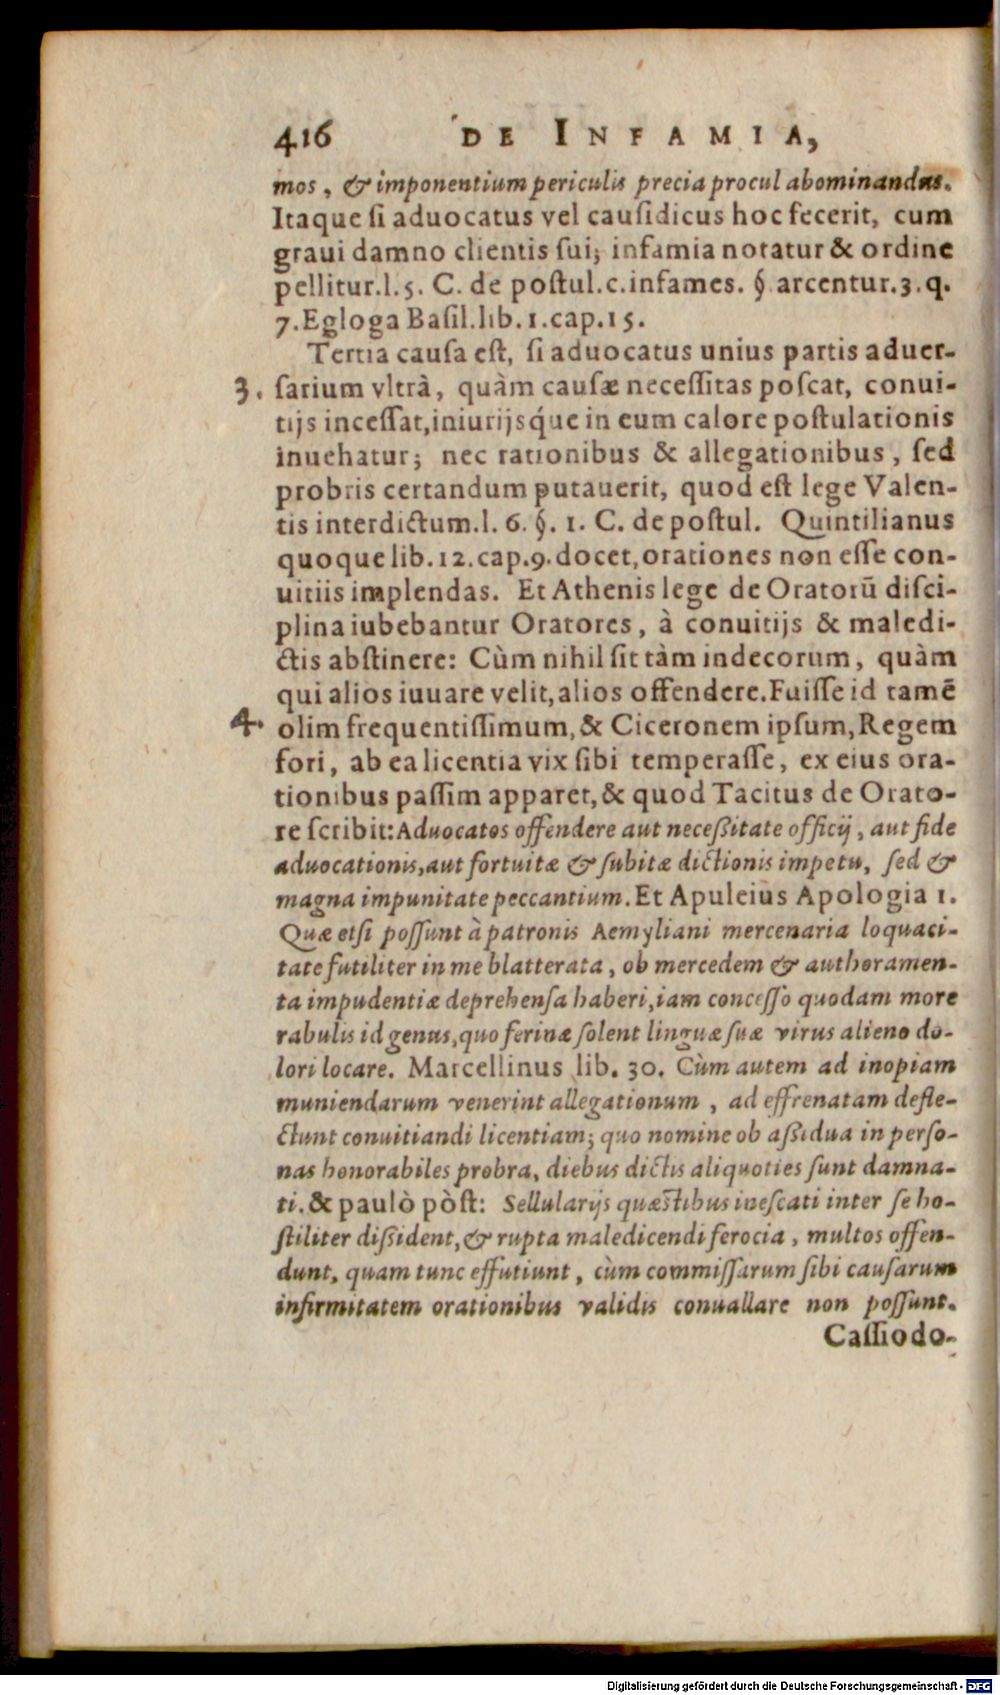 416 DE INFAMIA,
mos, & imponentium periculis precia procul abominandus.
Itaque si aduocatus vel causidicus hoc fecerit, cum
graui damno clientis sui; infamia notatur & ordine
pellitur.l.5. C. de postul.c.infames. §. arcentur.3.q.
7.Egloga Basil.lib.1.cap.15.
Tertia causa est, si aduocatus unius partis aduer-
3. sarium vltrà, quàm causæ necessitas poscat, conui-
tijs incessat,iniurijsq́ue in eum calore postulationis
inuehatur; nec rationibus & allegationibus, sed
probris certandum putauerit, quod est lege Valen-
tis interdictum.l. 6. §. 1. C. de postul. Quintilianus
quoque lib.12.cap.9.docet,orationes non esse con-
uitiis implendas. Et Athenis lege de Oratorū disci-
plina iubebantur Oratores, à conuitijs & maledi-
ctis abstinere: Cùm nihil sit tàm indecorum, quàm
qui alios iuuare velit,alios offendere.Fuisse id tamē
4. olim frequentissimum,& Ciceronem ipsum,Regem
fori, ab ea licentia vix sibi temperasse, ex eius ora-
tionibus passim apparet,& quod Tacitus de Orato-
re scribit:Aduocatos offendere aut necessitate officij, aut fide
aduocationis,aut fortuitæ & subitæ dictionis impetu, sed &
magna impunitate peccantium.Et Apuleius Apologia 1.
Quæ etsi possunt à patronis Aemyliani mercenaria loquaci-
tate futiliter in me blatterata, ob mercedem & authoramen-
ta impudentiæ deprehensa haberi,iam concesso quodam more
rabulis id genus,quo ferinæ solent linguæ suæ virus alieno do-
lori locare. Marcellinus lib. 30. Cùm autem ad inopiam
muniendarum venerint allegationum, ad effrenatam defle-
ctunt conuitiandi licentiam; quo nomine ob assidua in perso-
nas honorabiles probra, diebus dictis aliquoties sunt damna-
ti. & paulò pòst: Sellularijs quæstibus inescati inter se ho-
stiliter dissident,& rupta maledicendi ferocia, multos offen-
dunt, quam tunc effutiunt, cùm commissarum sibi causarum
infirmitatem orationibus validis conuallare non possunt.
Cassiodo-
Digitalisierung gefördert durch die Deutsche Forschungsgemeinschaft - DFG